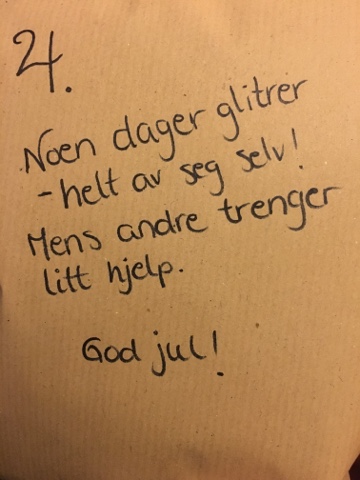 24.
Noen dager glitrer
- helt av seg selv!
Mens andre trenger
litt hjelp.
God jul!